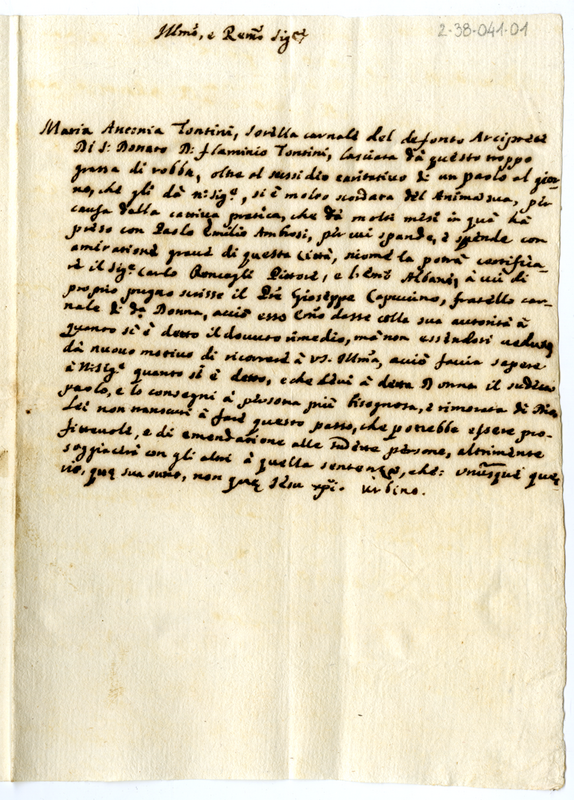 2-38-041-01
Illmo, e Remo Sigre
Maria Antonia Tontini, sorella carnale del defonto Arciprete
Di S: Donato D: Flaminio Tontini, lasciata da questo troppo
grassa di robba, oltre al sussidio caritativo di un paolo al gior-
no, che gli dà N: Sige, si è molto scordata dell'Anima sua, per
causa della cattiva pratica, che da molti mesi in quà hà
preso con Paolo Emilio Ambrosi, per cui spande, e spende con
amirazione grave di questa Città, sicome la potrà certifica-
re il Sige Carlo Roncagli Pittore, e l'Emo Albani, à cui di
proprio pugno scrisse il Pre Gioseppe Capucino, fratello car-
nale di da Donna, acciò esso Emo dasse colla sua autorità à
quanto si è detto il dovuto rimedio, mà non essendosi veduto
dà nuovo motivo di ricorrere à VS. Illma, acciò facia sapere
à N: Sige quanto si è detto, e che levi à detta Donna il sudetto
paolo, e lo consegni à persona più bisognosa, e timorata di Dio
Lei non mancarà à fare questo passo, che potrebbe essere pro-
fittevole, e di emendazione alle sudette persone, altrimente
soggiacerà con gli altri à quella sentenza, che: unusquisque querit
que sua sunt, non que Jesu xpi. Urbino.